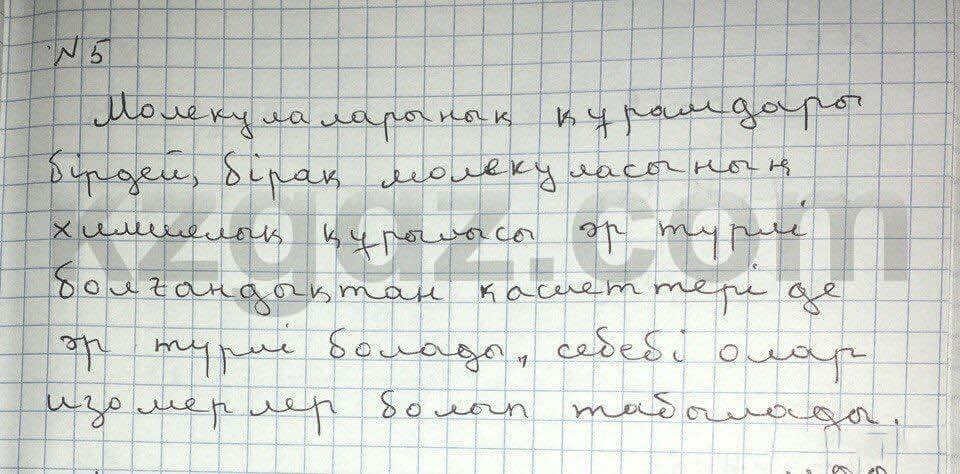 №5
Молекулаларының құрамдары
бірдей, бірақ молекуласының
химиялық құрылысы әр түрлі
болғандықтан қасиеттері де
әр түрлі болады, себебі олар
изомерлер болып табылады.
kzgdz.com